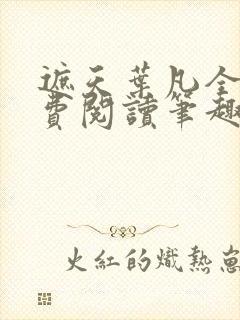 遮天葉凡全
費閱讀筆趣
火紅的熾熱